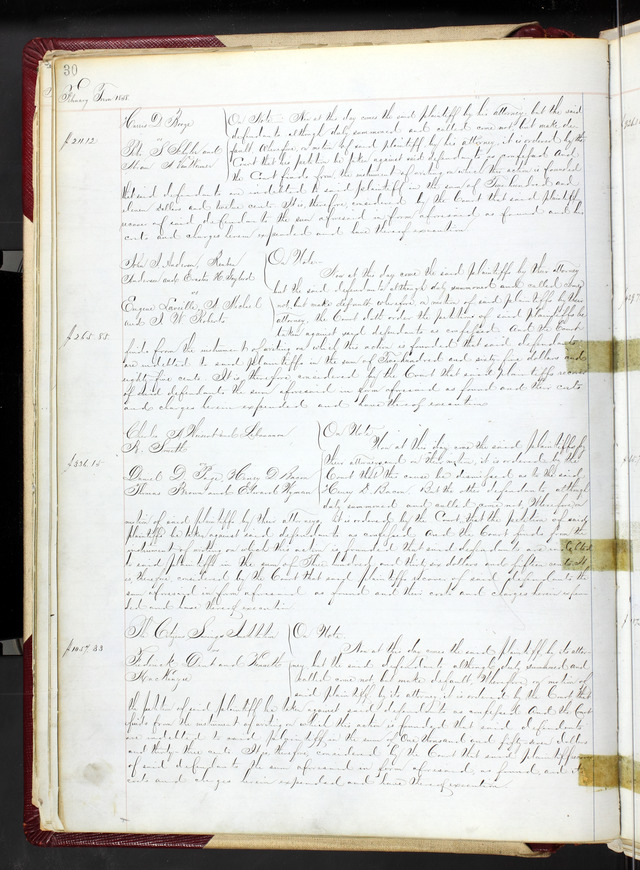 30
February Term 1858
On Note. Now at this day comes the said plaintiff by his attorney but the said
$211.12
defendants although duly summoned and called come not but make de-
fault Wherefore on motion of said plaintiff by his attorney it is ordered by the
Court that his petition be taken against said defendants as confessed And
the Court finds from the instrument of writing on which this action is founded
that said defendants are indebted to said plaintiff in the sum of Two hundred and
eleven dollars and twelve cents It is therefore considered by the Court that said plaintiff
recover of said defendants the sum aforesaid in form aforesaid as found and his
costs and charges herein expended and have thereof execution
On Note.
Now at this day come the said plaintiffs by their attorney
but the said defendants although duly summoned and called come
Eugene
vs
not but make default wherefore on motion of said plaintiffs by their
and J. W. Roberts
attorney the Court doth order the petition of said plaintiffs be
$265.85
taken against said defendants as confessed And the Court
finds from the instrument of writing on which this action is founded that said defendants
are indebted to said plaintiffs in the sum of Two hundred and sixty five dollars and
eighty five cents It is therefore considered by the Court that said plaintiffs recover
of said defendants the sum aforesaid in form aforesaid as found and their costs
and charges herein expended and have thereof execution
On Note
R. Smith
Now at this day come the said plaintiffs by
$336.15
their attorney and on their motion it is ordered by the
Daniel D. Page, Henry D. Bacon
Court that this cause be as to the said
Henry D. Bacon But the other defendants although
duly summoned and called come not Wherefore on
motion of said plaintiffs by their attorney it is ordered by the Court that the petition of said
plaintiffs be taken against said defendants as confessed And the Court finds from the
instrument of writing on which this action is founded that said defendants are indebted
to said plaintiffs in the sum of Three hundred and thirty six dollars and fifteen cents It
is therefore considered by the Court that said plaintiffs recover of said defendants the
sum aforesaid in form aforesaid as found and their costs and charges herein expen-
ded and have thereof execution
On Note.
$1057.33
vs
Now at this day comes the said plaintiff by its attor-
ney but the said defendants although duly summoned and
called come not but make default Wherefore on motion of
said plaintiff by its attorney it is ordered by the Court that
the petition of said plaintiff be taken against said defendants as confessed And the Court
finds from the instrument of writing on which this action is founded that said defendants
are indebted to said plaintiff in the sum of One thousand and fifty seven dollars
and thirty three cents It is therefore considered by the Court that said plaintiff recover
of said defendants the sum aforesaid in form aforesaid as found and its
costs and charges herein expended and have thereof execution